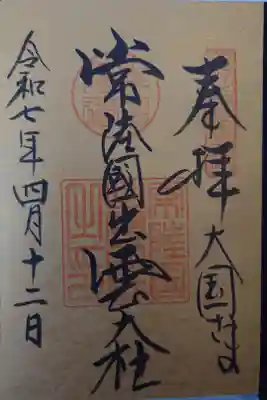 奉拝 大国さま
常陸國出雲大社
令和七年四月十二日